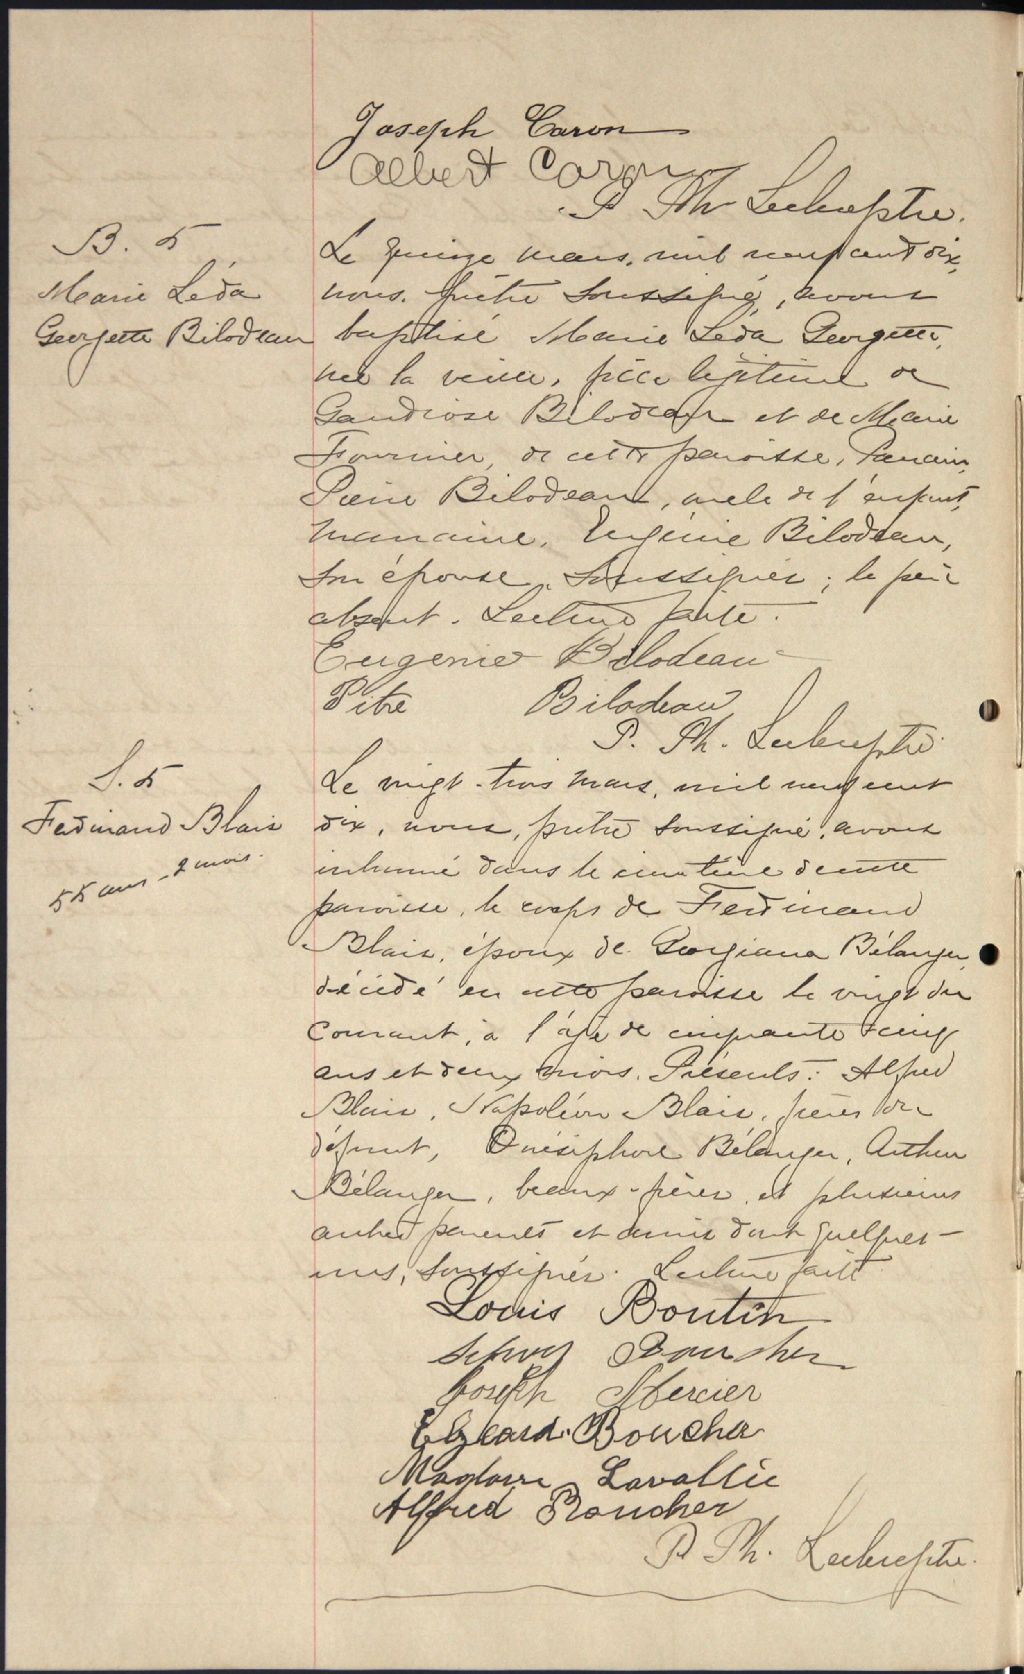 Joseph Caron
Albert Caron
P. Th. Leclerc, ptre.
B. 5
Marie Léda
Georgette Bilodeau
Le quinze mars, mil neuf cent dix,
nous, prêtre soussigné, avons
baptisé Marie Léda Georgette,
née la veille, fille légitime de
Gaudiose Bilodeau et de Marie
Fournier, de cette paroisse. Parrain,
Pierre Bilodeau, oncle de l'enfant,
marraine, Eugénie Bilodeau,
son épouse, soussignés ; le père
absent. Lecture faite.
Eugenie Bilodeau
Pitre Bilodeau
P. Th. Leclerc, ptre.
S. 5
Ferdinand Blais
55 ans - 2 mois.
Le vingt-trois mars, mil neuf cent
dix, nous, prêtre soussigné, avons
inhumé dans le cimetière de cette
paroisse, le corps de Ferdinand
Blais, époux de Georgiana Bélanger,
décédé en cette paroisse le vingt du
courant, à l'âge de cinquante cinq
ans et deux mois. Présents : Alfred
Blais, Napoléon Blais, frères du
défunt, Onésiphore Bélanger, Arthur
Bélanger, beaux-frères, et plusieurs
autres parents et amis dont quelques-
uns, soussignés. Lecture faite.
Louis Boutin
Boucher
Joseph Mercier
Elzéard Boucher
Lavallée
Alfred Boucher
P. Th. Leclerc, ptre.